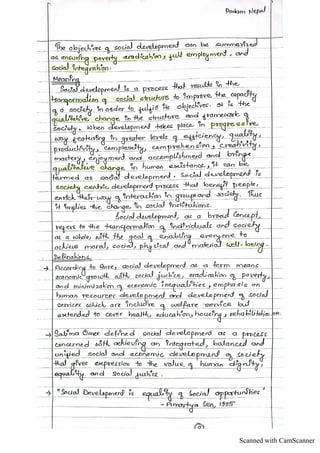 Padam Nepal
The objectives of social development can be summarized
as ensuring poverty eradication, full employment, and
social integration.
Meaning
Social development is a process that results in the
transformation of social structure to improve the capacity
of a society in order to fulfil its objectives. It is the
qualitative change in the structure and framework of
society. When development takes place in progressive
way featuring in greater levels of efficiency, quality,
productivity, complexity, comprehension, creativity,
mastery, enjoyment and accomplishment and brings
qualitative change in human existence, it can be
termed as social development. Social development is
society centric development process that benefit people,
enrich their way of interaction in group and society. Thus
it implies the change in social institutions.
Social development, as a broad concept,
refers to the transformation of individuals and society
as a whole, with the goal of enabling everyone to
achieve moral, social, physical and material well-being.
Definitions
→ According to Gore, social development as a term means
economic growth with social justice, eradication of poverty,
and minimization of economic inequalities, emphasis on
human resource development and development of social
services which are inclusive of welfare service but
extended to cover health, education, housing, rehabilitation etc.
→ Salima Omer defined social development as a process
concerned with achieving an integrated, balanced and
unified social and economic development of society
that gives expression to the value of human dignity,
equality and social justice.
→ "Social Development is equality of social opportunities"
- Amartya Sen, 1995
Scanned with CamScanner